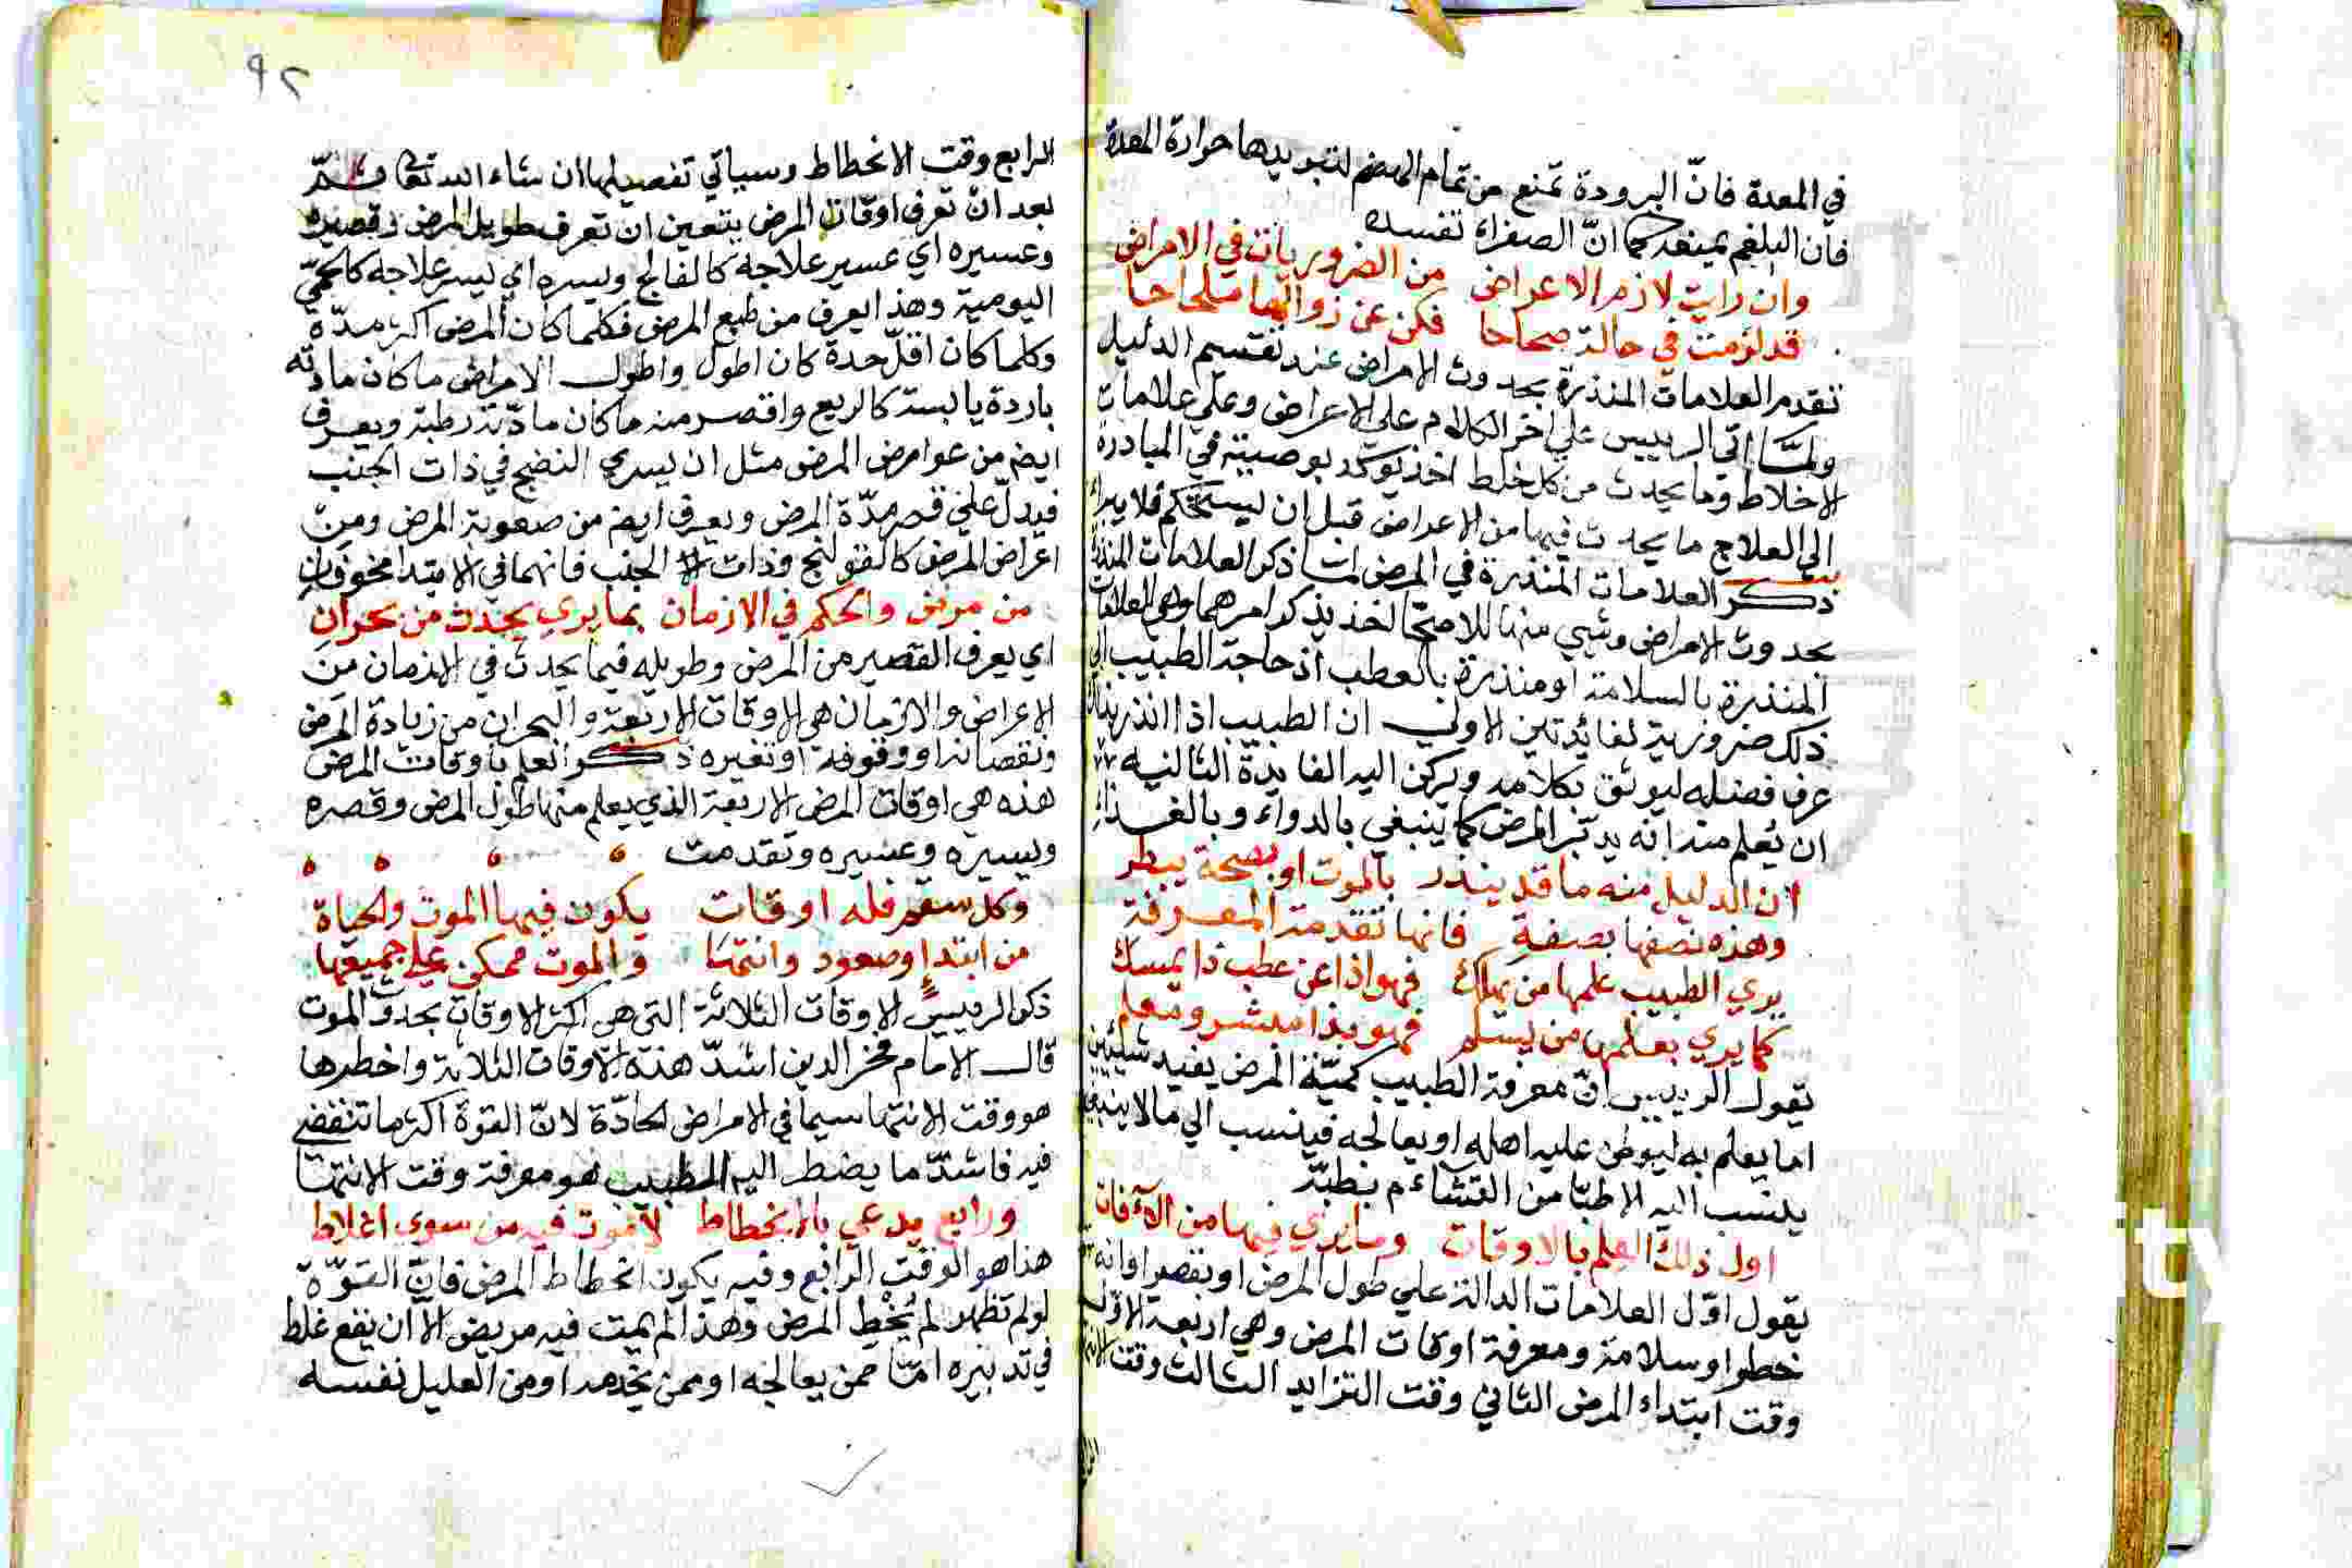 في المعدة فانّ البرودة تمنع من تمام الهضم لتبريدها حرارة المعدة
فان البلغم يمنعه كما انّ الصفراء تفسده
وان رايت لازم الاعراض من الضروريات في الامراض
قد لزمت في حالة صحاحا فكن عن زوالها ملحاحا
تقدم العلامات المنذرة بحدوث الامراض عند تقسيم الدليل
ولمّا اتى الرييس على اخر الكلام على الاعراض وعلى علامات
الاخلاط وما يحدث من كل خلط اخذ يوكد بوصيته في المبادرة
الى العلاج ما يحدث فيها من الاعراض قبل ان يستحكم فلا يبرا
ذكر العلامات المنذرة في المرض لما ذكر العلامات المنذرة
بحدوث الامراض وشي منها اخذ يذكر امرهما وهي العلامات
المنذرة بالسلامة او منذرة بالعطب اذ حاجة الطبيب الي
ذلك ضرورية لفائدتين الاولي ان الطبيب اذا انذر بذلك
عرف فضله ليوثق بكلامه ويركن اليه الفايدة الثانية
ان يُعلم منه انه يدبّر المرض كما ينبغي بالدواء وبالغذاء
ان الدليل منه ما قد ينذر بالموت او بصحة يبطر
وهذه نصفها بصفة فانها تقدمة المعرفة
يري الطبيب علمها من يهلك فهو اذا عن عطب ذا يمسك
كما يري بعلمها من يسلم فهو بذا مبشر ومعلم
يقول الرييس انّ معرفة الطبيب كميّة المرض يفيد شيئين
اما يعلم به ليوطن عليه اهله او يعالجه فينسب الي مالا ينبغي
ينسب اليه الاطبّا من التشاءم بطبّه
اول ذلك العلم بالاوقات وما يري فيها من الآفات
يقول اوّل العلامات الدالة على طول المرض او بقصر اوانه
خطرا وسلامة ومعرفة اوقات المرض وهي اربعة الاول
وقت ابتداء المرض الثاني وقت التزايد الثالث وقت الانتها
٩٢
الرابع وقت الانحطاط وسياتي تفصيلها ان شاء الله تعا ثمّ
بعد ان تعرف اوقات المرض يتعين ان تعرف طويل المرض وقصيره
وعسيره اي عسير علاجه كالفالج ويسره اي يسر علاجه كالحمّي
اليومية وهذا يعرف من طبع المرض فكلما كان المرض اكثر مدّة
وكلما كان اقلّ حدة كان اطول واطول الامراض ما كان مادته
باردة يابسة كالربع واقصر منه ما كان مادّته رطبة ويعرف
ايضم من عوارض المرض مثل ان يسري النضج في ذات الجنب
فيدلّ على قصر مدّة المرض ويعرف ايضم من صعوبة المرض ومن
اعراض المرض كالقولنج وذات الجنب فانهما في الابتدا مخوفان
من مرض والحكم في الازمان بما يري يحدث من بحران
اي يعرف القصير من المرض وطويله فيما يحدث في الازمان من
الاعراض والازمان هي الاوقات الاربعة والبحران من زيادة المرض
ونقصانه او وقوفه او تغيره ذكر العلم باوقات المرض
هذه هي اوقات المرض الاربعة الذي يعلم منها طول المرض وقصره
ويسيره وعسيره وتقدمت
وكل سقم فله اوقات يكون فيها الموت والحياة
من ابتداء وصعود وانتها والموت ممكن على جميعها
ذكر الرييس الاوقات الثلاثة التي هي اكثر الاوقات بحدوث الموت
قال الامام فخر الدين اشدّ هذه الاوقات الثلاثة واخطرها
هو وقت الانتها سيما في الامراض الحادّة لانّ القوة اكثر ما تنقضي
فيه فاشدّ ما يضطر اليه الطبيب هو معرفة وقت الانتها
ورابع يدعي بالانحطاط لا موت فيه من سوي اغلاط
هذا هو الوقت الرابع وفيه يكون انحطاط المرض فانّ القوّة
لو لم تظهر لم يُحَطِ المرض وهذا لم يمت فيه مريض الّا ان يقع غلط
في تدبيره امّا ممن يعالجه او ممن يخدمه او من العليل نفسه